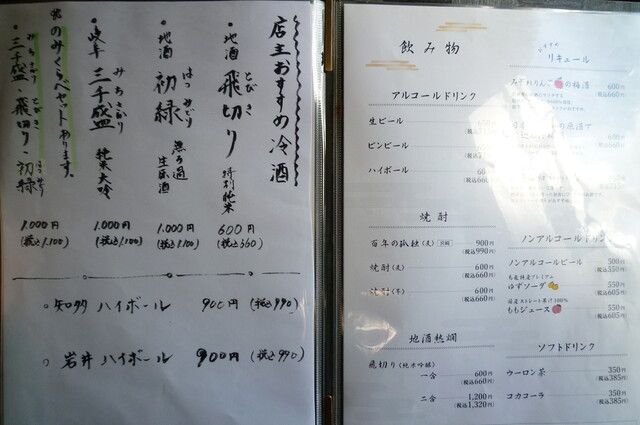 店主おすすめ 冷酒
・地酒 飛切り 特別純米
とびき
600円
(税込660)
・地酒 初緑 無ろ過生原酒
はつみどり
1.000円
(税込1.100)
・岐阜 三千盛 純米大吟
みちさかり
1.000円
(税込1.100)
※のみくらべセットあります。
三千盛・飛切り・初緑
みちさかり とびき はつみどり
1.000円
(税込1.100)
○知多 ハイボール 900円 (税込990)
○岩井 ハイボール 900円 (税込990)
飲み物
アルコールドリンク
生ビール
ビンビール
ハイボール
(税込660
焼酎
百年の孤独(麦) 900円
(税込990円)
焼酎(麦) 600円
(税込660円)
焼酎(芋) 600円
(税込660円)
地酒熱燗
飛切り(純米吟醸)
一合 600円
(税込660円)
二合 1,200円
(税込1,320円)
リキュール
みぞれりんごの梅酒 600円
(税込660円)
ノンアルコールドリンク
ノンアルコールビール 500円
(税込550円)
馬路村産プレミアム
ゆずソーダ 550円
(税込605円)
国産ストレート果汁100%
ももジュース 550円
(税込605円)
ソフトドリンク
ウーロン茶 350円
(税込385円)
コカコーラ 350円
(税込385円)